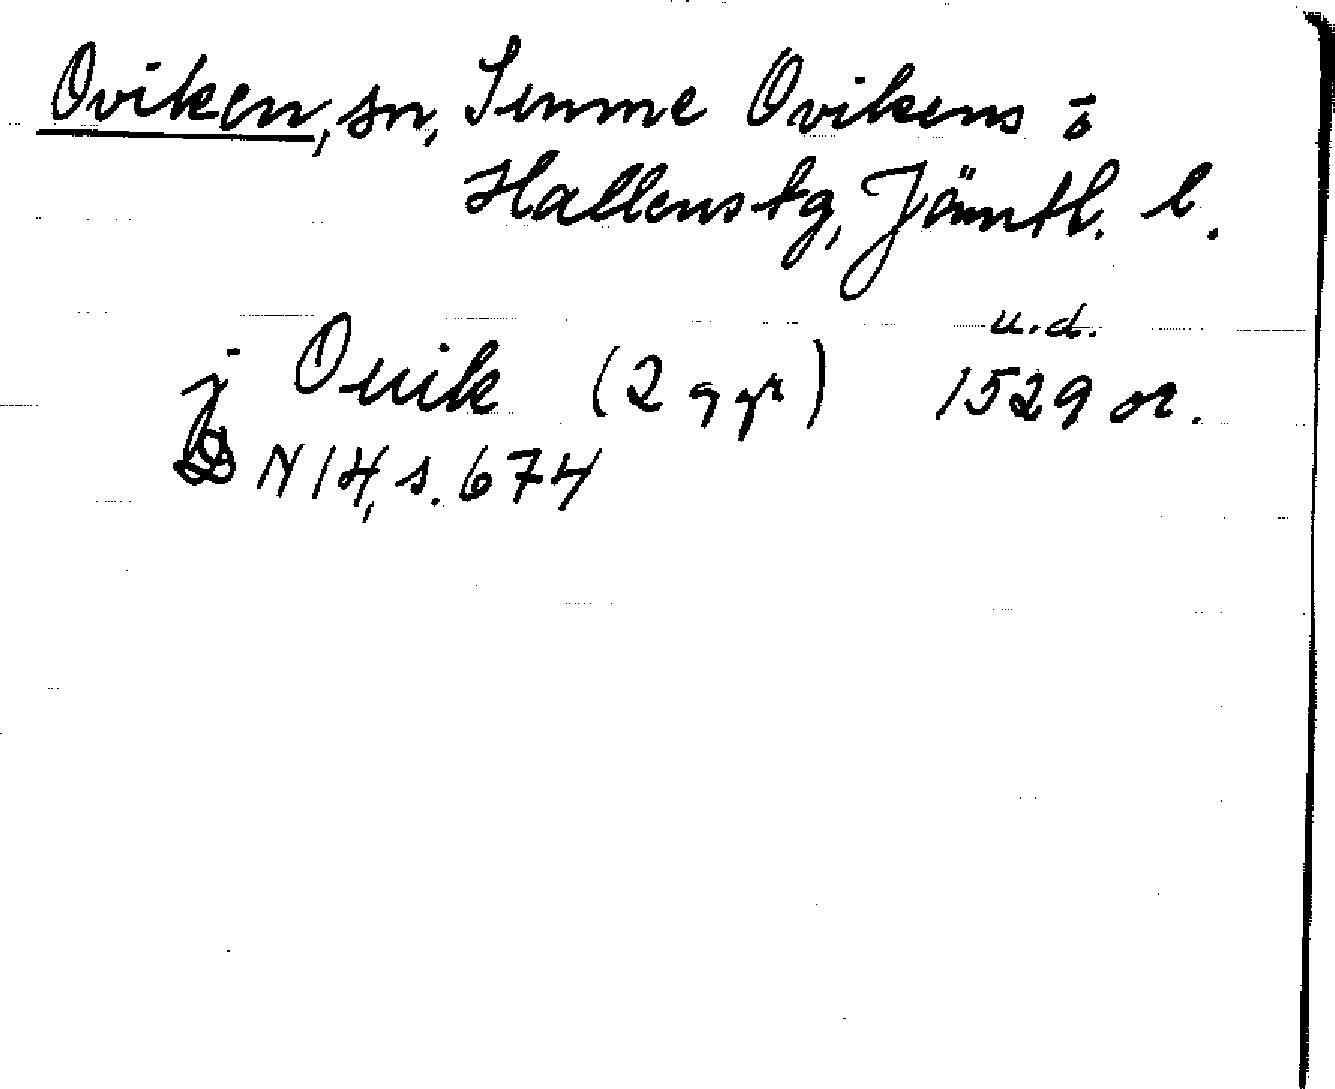 Oviken, sn, Sunne Ovikens o
Hallens tg, Jämtl. l.
u.d.
j Ouik (2 ggr) 1529 or.
DN 14, s. 674